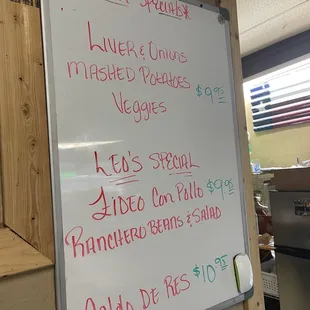 SPECIALS*
LIVER & ONIONS
MASHED POTATOES $9.95
VEGGIES
LEO'S SPECIAL
FIDEO CON POLLO $9.95
RANCHERO BEANS & SALAD
CALDO DE RES $10.95